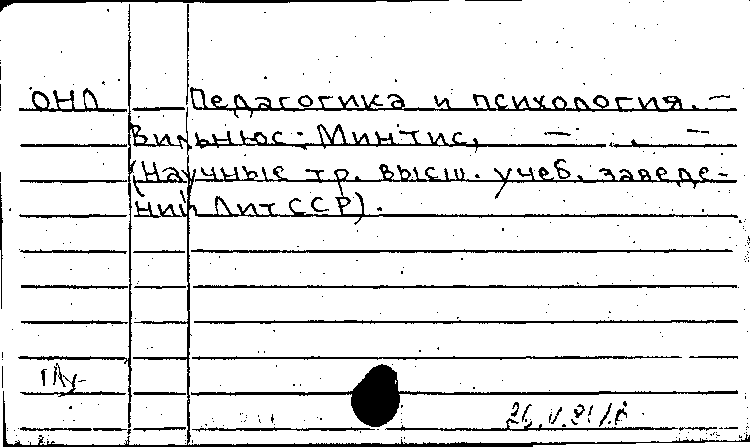 ОНЛ Педагогика и психология. –
Вильнюс: Минтис, – . –
(Научные тр. высш. учеб. заведе-
ний ЛитССР).